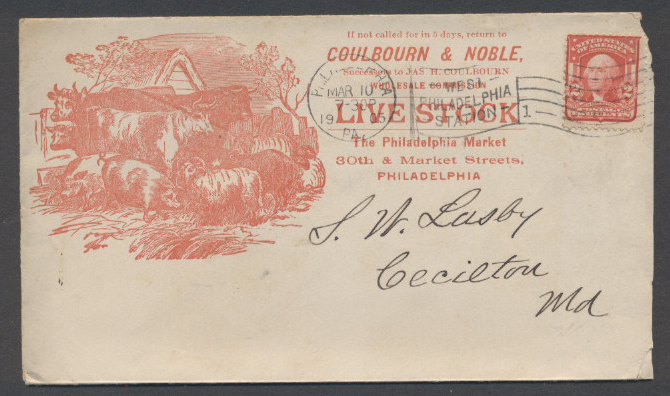 If not called for in 5 days, return to
COULBOURN & NOBLE,
Successors to JAS. H. COULBOURN
WHOLESALE COMMISSION
LIVE STOCK
The Philadelphia Market
30th & Market Streets,
PHILADELPHIA
PHILADELPHIA
MAR 10
7-30P
1905
PA.
WEST
PHILADELPHIA
STATION
1
UNITED STATES
OF AMERICA
2 2
S. W. Lusby
Cecilton
Md